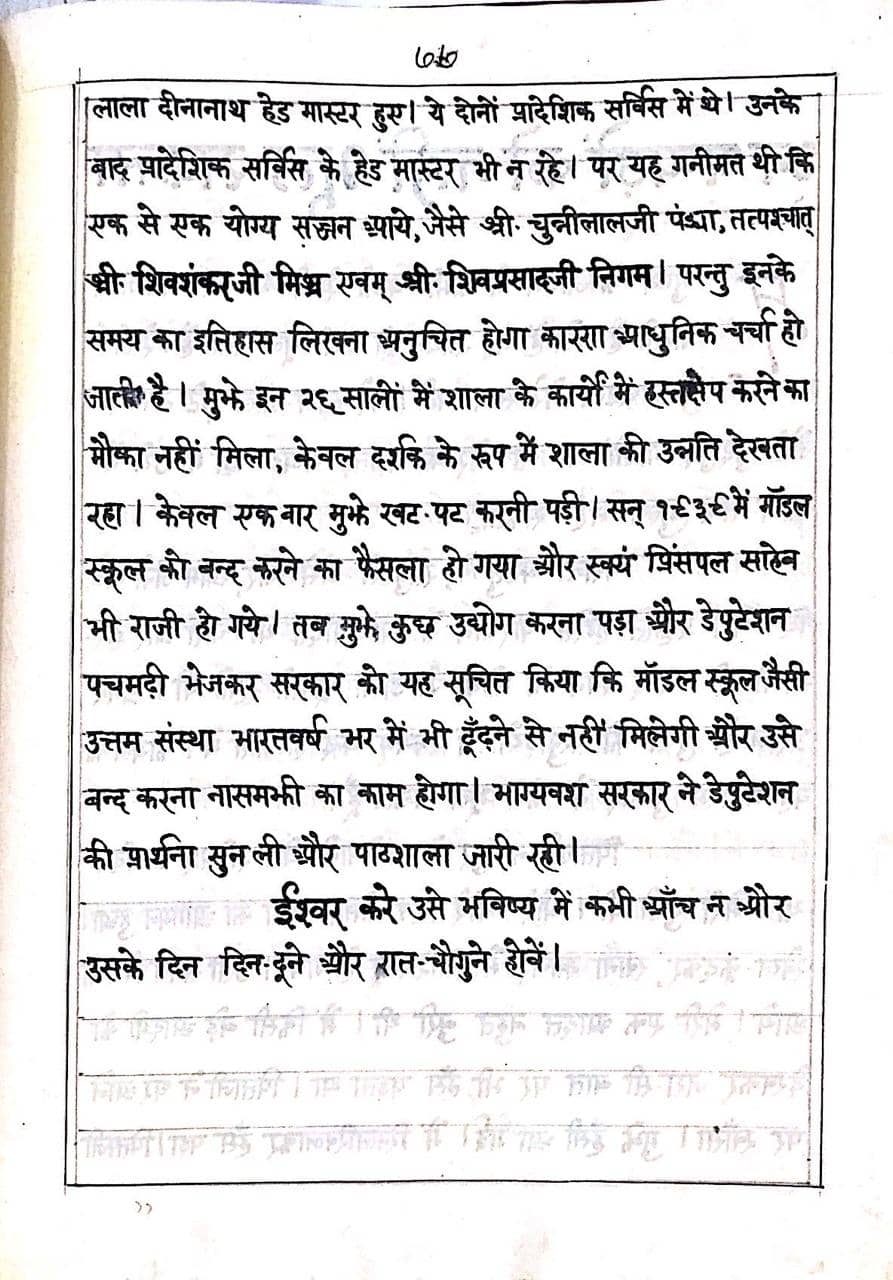 ७७
लाला दीनानाथ हेड मास्टर हुए। ये दोनों प्रादेशिक सर्विस में थे। उनके
बाद प्रादेशिक सर्विस के हेड मास्टर भी न रहे। पर यह गनीमत थी कि
एक से एक योग्य सज्जन आये, जैसे श्री. चुन्नीलालजी पंड्या, तत्पश्चात्
श्री. शिवशंकरजी मिश्र एवम् श्री. शिवप्रसादजी निगम। परन्तु इनके
समय का इतिहास लिखना अनुचित होगा कारण आधुनिक चर्चा हो
जाती है। मुझे इन २६ सालों में शाला के कार्यों में हस्तक्षेप करने का
मौका नहीं मिला, केवल दर्शक के रूप में शाला की उन्नति देखता
रहा। केवल एक बार मुझे खट-पट करनी पड़ी। सन् १९३९ में मॉडल
स्कूल को बन्द करने का फैसला हो गया और स्वयं प्रिंसपल साहेब
भी राजी हो गये। तब मुझे कुछ उद्योग करना पड़ा और डेपुटेशन
पचमढ़ी भेजकर सरकार को यह सूचित किया कि मॉडल स्कूल जैसी
उत्तम संस्था भारतवर्ष भर में भी ढूँढ़ने से नहीं मिलेगी और उसे
बन्द करना नासमझी का काम होगा। भाग्यवश सरकार ने डेपुटेशन
की प्रार्थना सुन ली और पाठशाला जारी रही।
ईश्वर करे उसे भविष्य में कभी आँच न और
उसके दिन दिन-दूने और रात-चौगुने होवें।